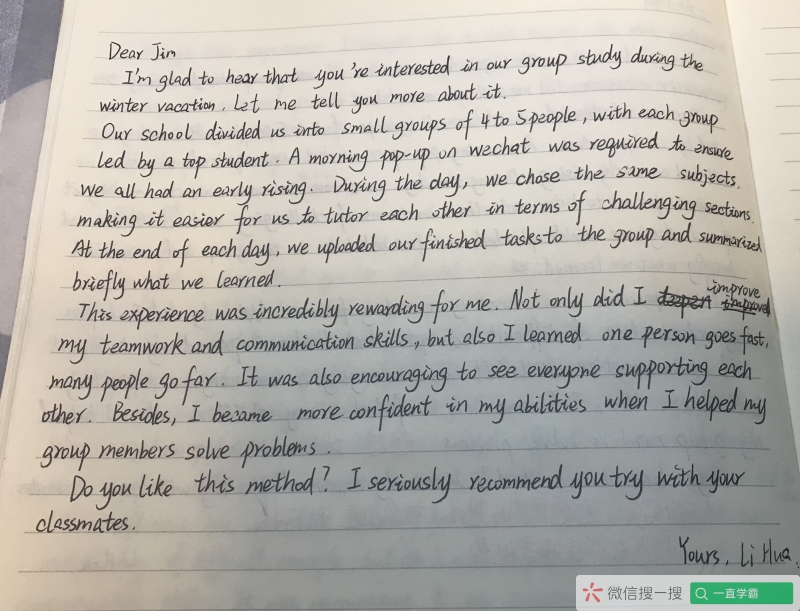 Dear Jim
I'm glad to hear that you're interested in our group study during the
winter vacation. Let me tell you more about it.
Our school divided us into small groups of 4 to 5 people, with each group
led by a top student. A morning pop-up on wechat was required to ensure
we all had an early rising. During the day, we chose the same subjects.
making it easier for us to tutor each other in terms of challenging sections.
At the end of each day, we uploaded our finished tasks to the group and summarized
briefly what we learned.
This experience was incredibly rewarding for me. Not only did I improve
my teamwork and communication skills, but also I learned one person goes fast,
many people go far. It was also encouraging to see everyone supporting each
other. Besides, I became more confident in my abilities when I helped my
group members solve problems.
Do you like this method? I seriously recommend you try with your
classmates.
Yours, Li Hua.
微信搜一搜 一直学霸